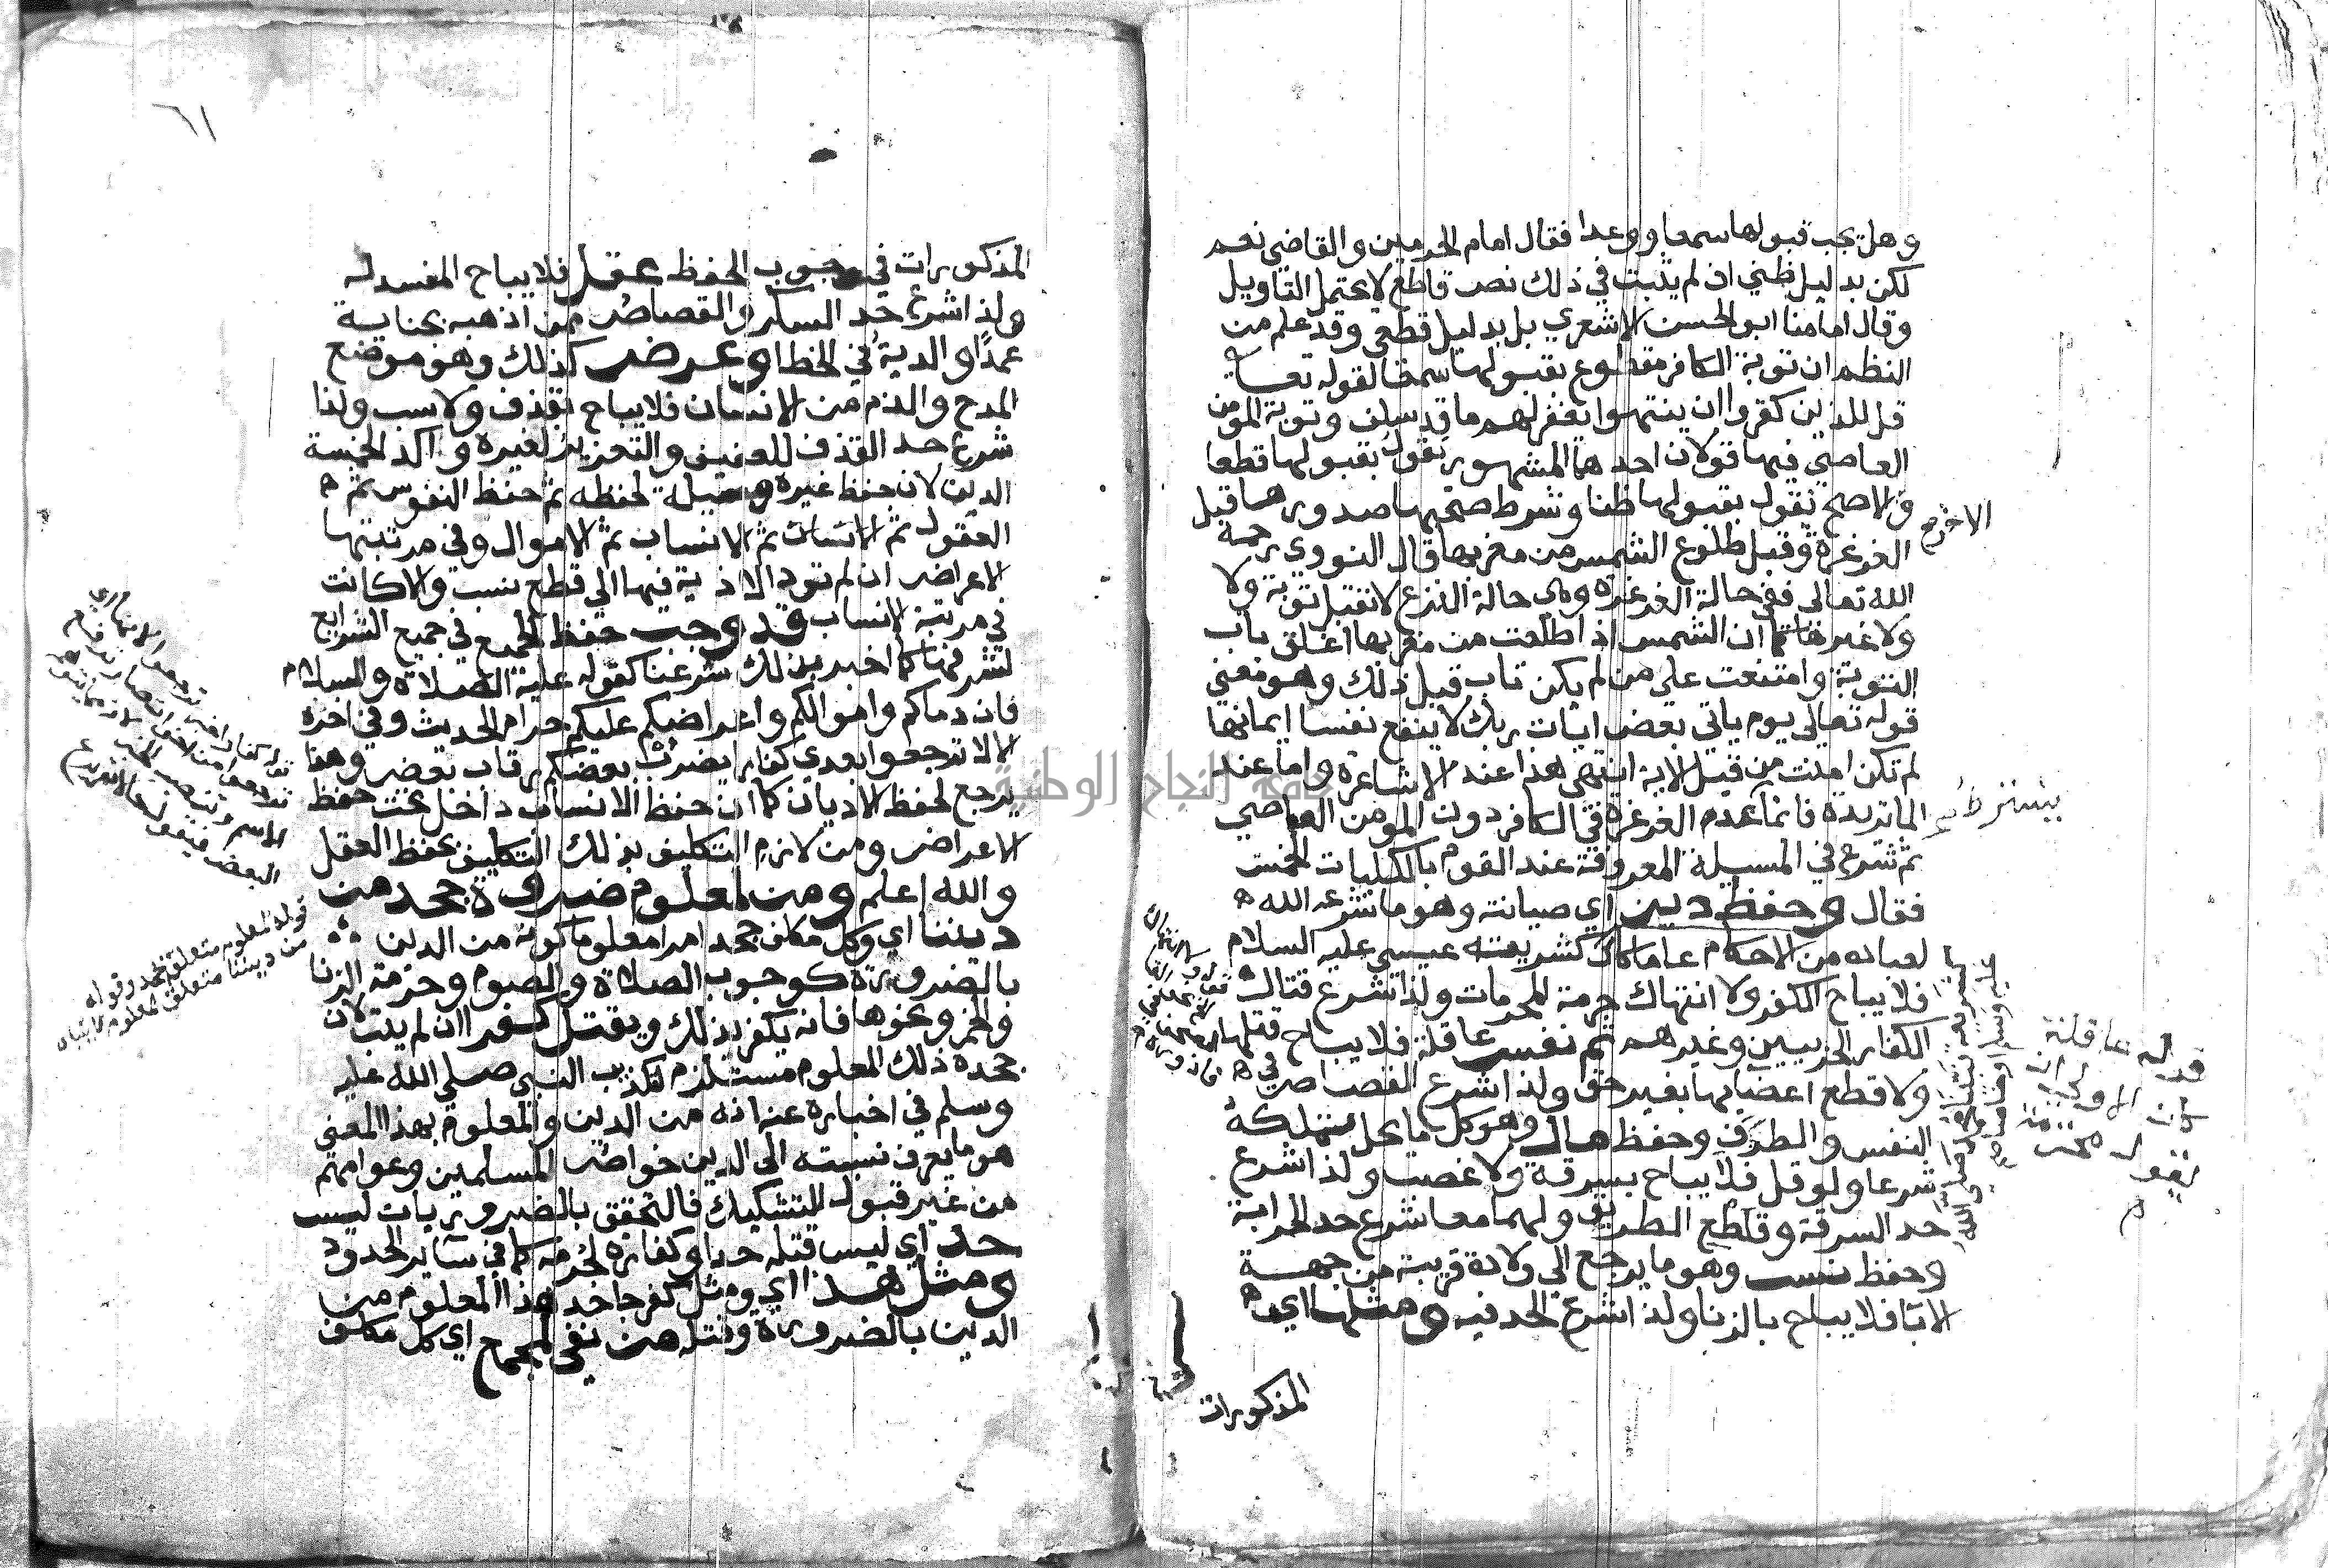 وهل يجب قبولها سمعا ووعدا فقال امام الحرمين والقاضي نعم
لكن بدليل ظني ان لم يثبت في ذلك نص قاطع لا يحتمل التاويل
وقال امامنا ابو الحسن الاشعري بل بدليل قطعي وقد علم من
النظم ان توبة الكافر مقطوع بقبولها سمعا لقوله تعا
قل للذين كفروا ان ينتهوا يغفر لهم ما قد سلف وتوبة المؤمن
العاصي فيها قولان احدهما المشهور نقول بقبولها قطعا
والاصح نقول بقبولها ظنا وشرط صحتها صدورها قبل
الغرغرة وقبل طلوع الشمس من مغربها قال النووي رحمه
الله تعالى ففي حالة الغرغرة وهي حالة النزع لا تقبل توبة ولا
ولا غيرها كما ان الشمس اذا طلعت من مغربها اغلق باب
التوبة وامتنعت على من لم يكن تاب قبل ذلك وهو معني
قوله تعالى يوم ياتي بعض ايات ربك لا ينفع نفسا ايمانها
لم تكن امنت من قبل الاية انتهى هذا عند الاشاعرة واما عند
الماتريده فانما عدم الغرغرة في الكافر دون المومن العاصي
ثم شرع في المسيلة المعروفة عند القوم بالكليات الخمس
فقال وحفظ دين اي صيانته وهو ما شرعه الله
لعباده من الاحكام عاما كان كشريعته عيسى عليه السلام
فلا يباح الكفر ولا انتهاك حرمة المحرمات ولذا شرع قتال
الكفار الحربيين وغيرهم ثم نفس عاقلة فلا يباح قتلها
ولا قطع اعضايها بغير حق ولذا شرع القصاص في
النفس والطرف وحفظ مال وهو كل ما يحل تملكه
شرعا ولو قل فلا يباح بسرقة ولا غصب ولذا شرع
حد السرقة وقطع الطريق ولهما معا شرع حد الحرابة
وحفظ نسب وهو ما يرجع الي ولادة قريبة من جهة
الابا فلا يباح بالزنا ولذا شرع الحد فيه ومثلها اي
المذكورات
قوله عاقلة
جامعة النجاح الوطنية
٦١
المذكورات في وجوب الحفظ عقل فلا يباح المفسد له
ولذا شرع حد السكر والقصاص ممن اذهبه بجناية
عمدا والدية في الخطا وعرض كذلك وهو موضع
المدح والذم من الانسان فلا يباح بقذف ولا سب ولذا
شرع حد القذف للعفيف والتعزير لغيره واكد الخمسة
الدين لان حفظ غيره وسيلة لحفظه ثم حفظ النفوس ثم
العقول ثم الانساب ثم الاموال وفي مرتبتها
الاعراض ان لم تود الاذية فيها الي قطع نسب والا كانت
في مرتبة الانساب قد وجب حفظ الجميع في جميع الشرايع
لشرفها كما اخبر بذلك شرعنا كقوله عليه الصلاة والسلام
فان دماكم واموالكم واعراضكم عليكم حرام الحديث وفي اخره
الا لا ترجعوا بعدي كفارا يضرب بعضكم رقاب بعض وهذا
يرجع لحفظ الاديان كما ان حفظ الانساب داخل تحت حفظ
الاعراض ومن لازم التكليف بذلك التكليف بحفظ العقل
والله اعلم ومن لمعلوم ضرورة جحد من
ديننا اي وكل مكلف جحد امرا معلوما كونه من الدين
بالضرورة كوجوب الصلاة والصوم وحرمة الزنا
والخمر ونحوها فانه يكفر بذلك ويقتل كفرا ان لم يتب لان
جحده ذلك المعلوم مستلزم لتكذيب النبي صلي الله عليه
وسلم في اخباره عنه انه من الدين والمعلوم بهذا المعني
هو ما يعرف نسبته الى الدين خواص المسلمين وعوامهم
من غير قبول للتشكيك فالتحقق بالضروريات ليس
حد اي ليس قتله حدا وكفارة لجرمه كما في ساير الحدود
ومثل هذا اي ومثل كفر جاحد هذا المعلوم من
الدين بالضرورة وقتله من نفى لمجمع اي كل مكلف
قوله لمعلوم متعلق بجحد وقوله
من ديننا متعلق بمعلوم